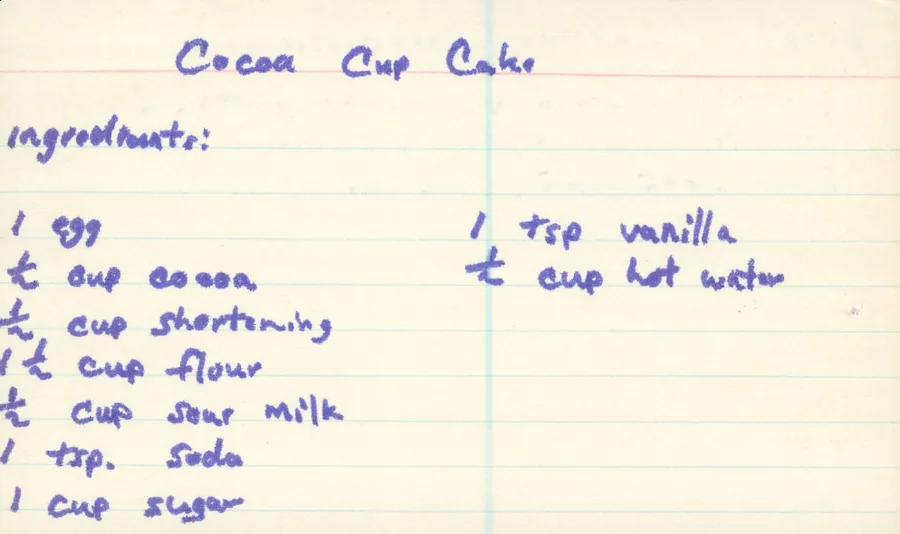 Cocoa Cup Cake
ingredients:
1 egg
½ cup cocoa
½ cup shortening
1 ½ cup flour
½ cup sour milk
1 tsp. soda
1 cup sugar
1 tsp vanilla
½ cup hot water